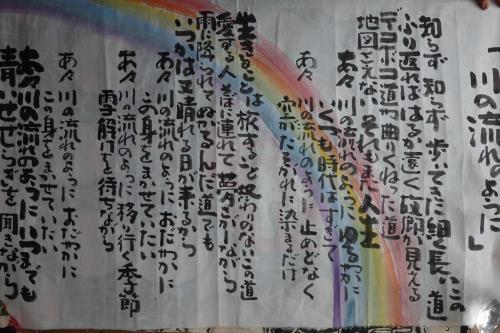 「川の流れのように」
知らず知らず歩いてきた細く長いこの道
ふり返ればはるか遠く故郷が見える
デコボコ道や曲りくねった道
地図さえない それもまた人生
あゝ 川の流れのように ゆるやかに
いくつも時代はすぎて
あゝ 川の流れのように とめどなく
空がたそがれに染まるだけ
生きることは旅すること終わりのないこの道
愛する人そばに連れて夢さがしながら
雨に降られてぬかるんだ道でも
いつかは又晴れる日が来るから
あゝ 川の流れのように おだやかに
この身をまかせていたい
あゝ 川の流れのように 移り行く季節
雪解けを待ちながら
あゝ 川の流れのように おだやかに
この身をまかせていたい
あゝ川の流れのように いつまでも
青いせせらぎを聞きながら